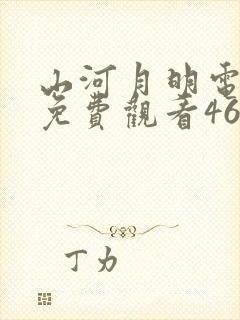 山河月明電
免費觀看46
丁力